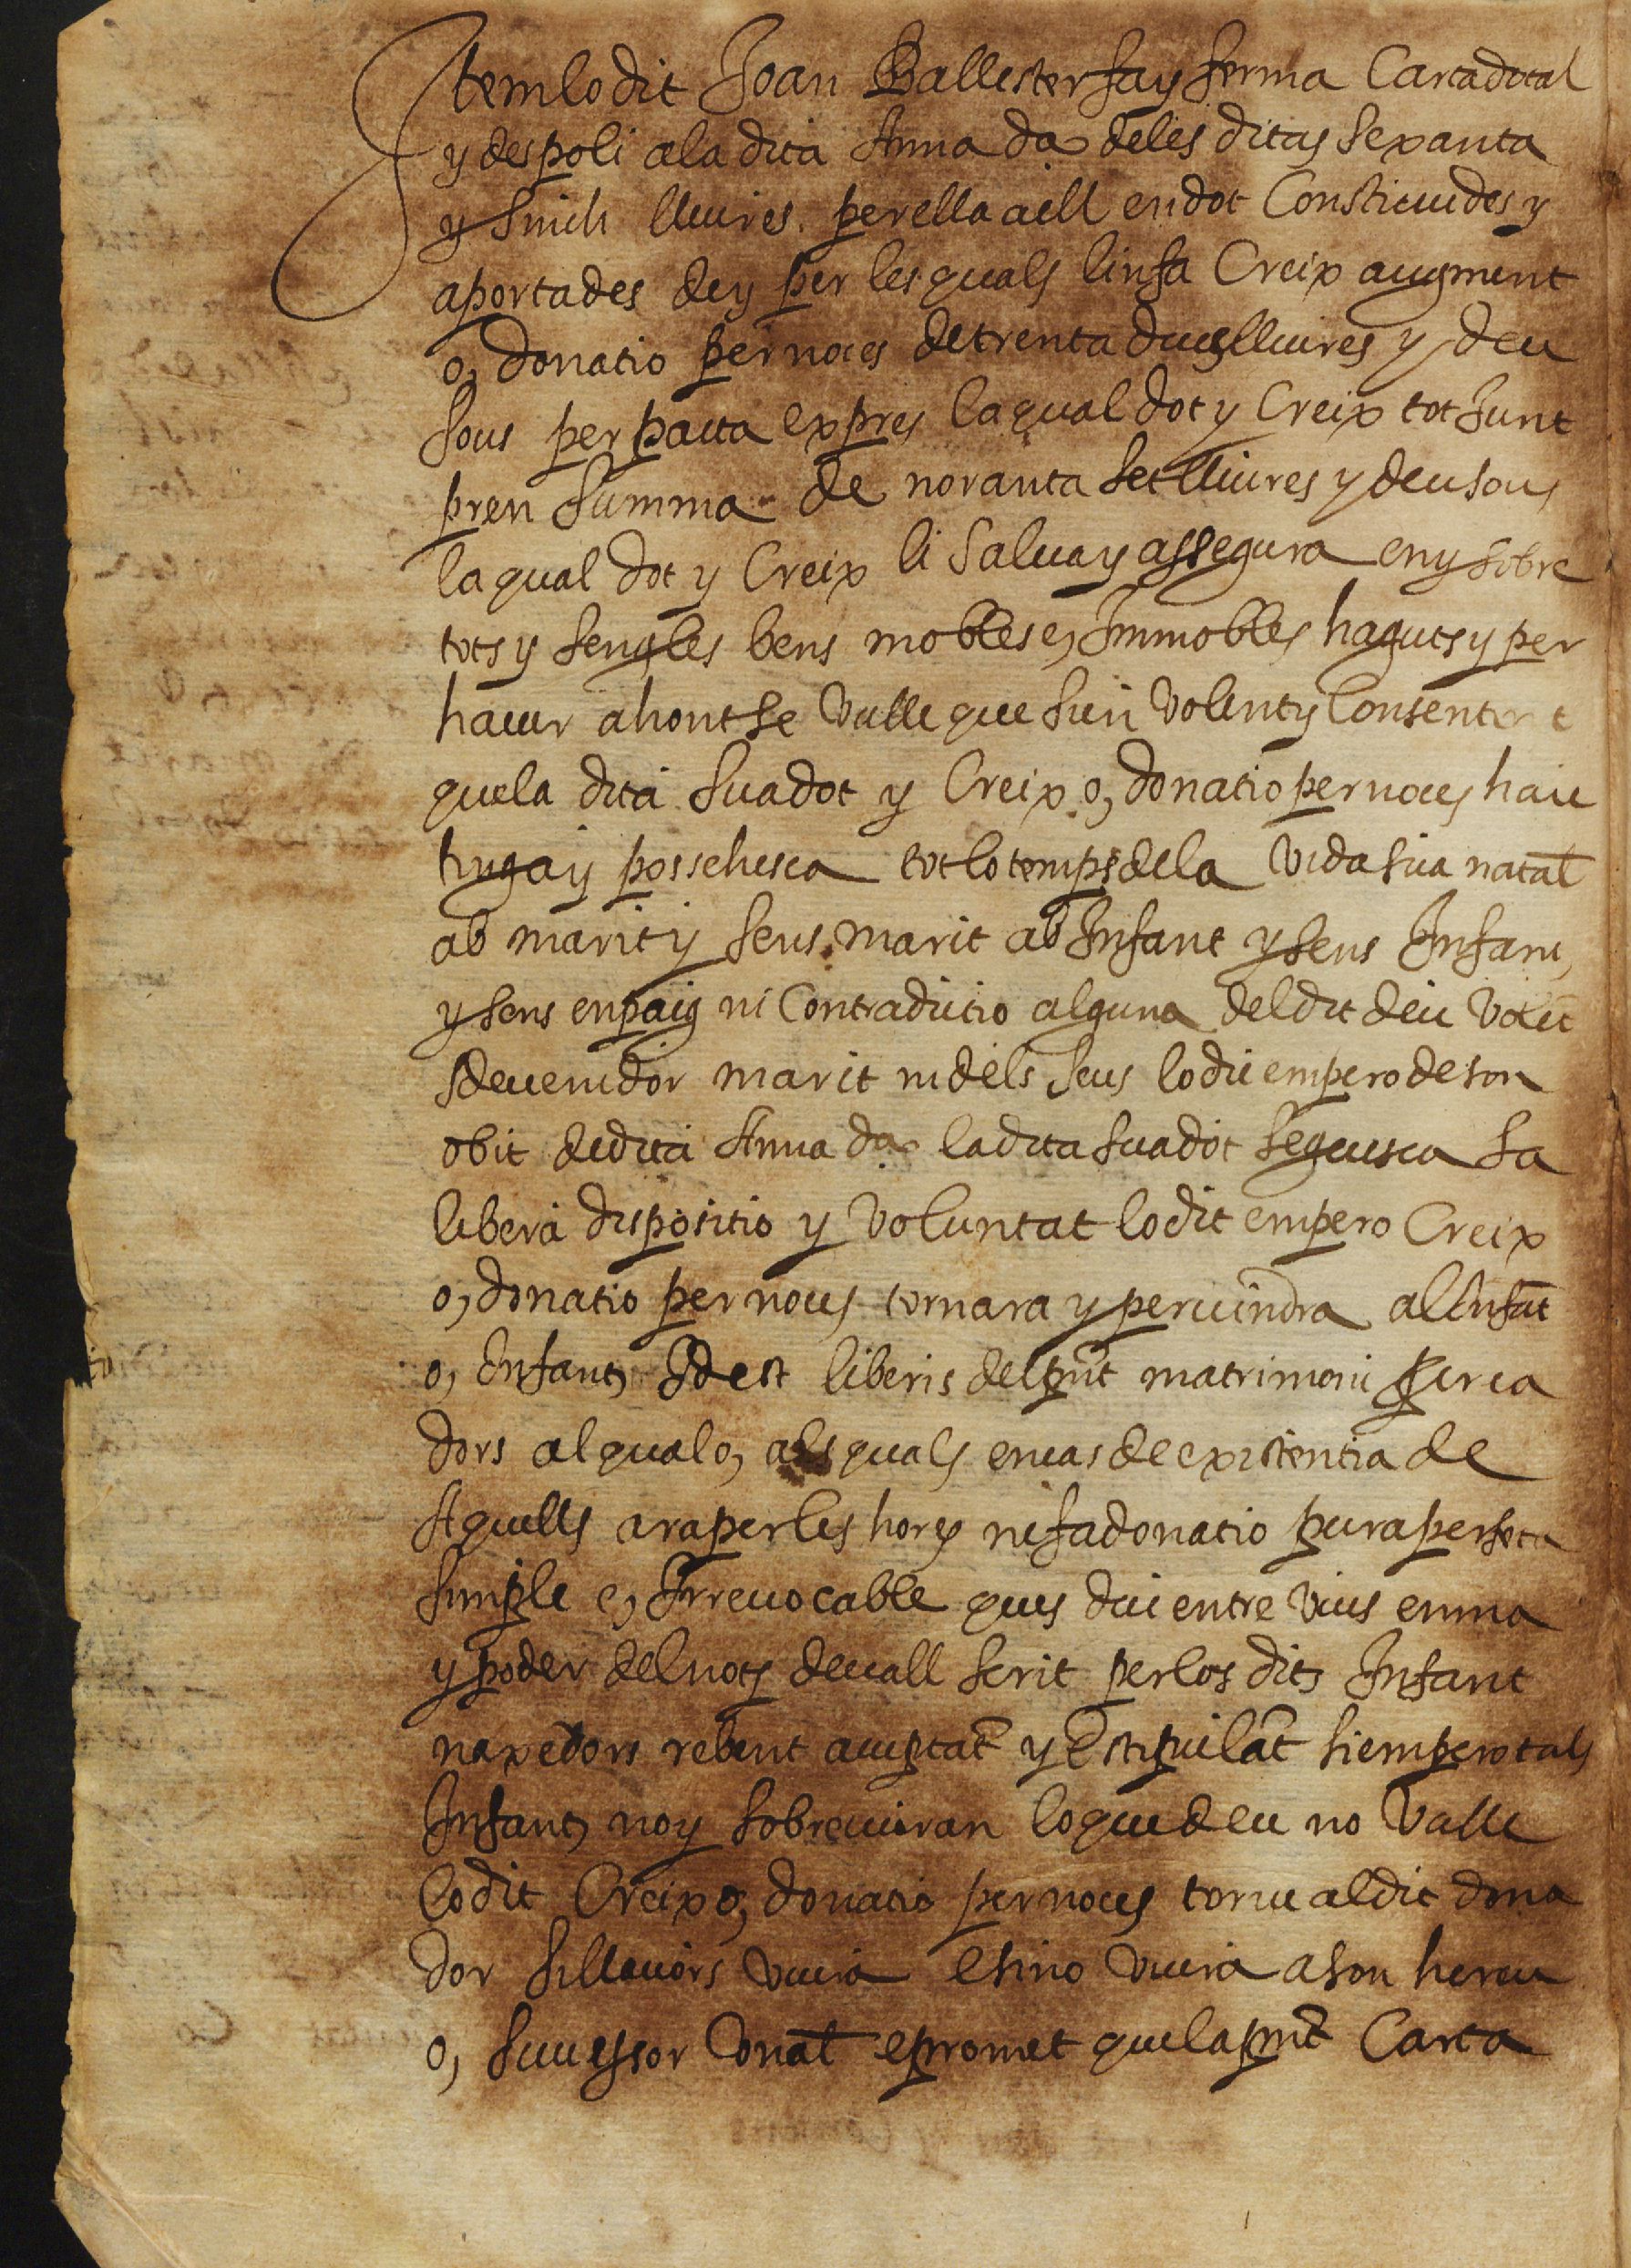 Item lo dit Joan Ballester fa y ferma Carta dotal
y despoli a la dita Anna da deles ditas Sexanta
y Sinch lliures. per ella a ell en dot Constituides y
aportades de y per les quals linfa Creix augment
o, donatio per noces de trenta dues lliures y deu
Sous per pacta expres la qual dot y Creix tot Junt
pren Summa de noranta Set lliures y deu sous
la qual dot y Creix li Salua y assegura en y sobre
tots y Sengles bens mobles e, Immobles haguts y per
hauer ahont se Vulle que Sien Volent y Consentent
que la dita Sua dot y Creix o, donatio per noces haie
tinga y possehesca tot lo temps de la Vida sua natal
ab marit y Sens marit ab Infant y sens Infant,
y sens enpaig ni Contradictio alguna del dit deu Volet
sdeuenidor marit ni dels Seus lo die empero de son
obit dedita Anna da la dita sua dot seguesca Sa
libera dispositio y Voluntat lo dit empero Creix
o, donatio per noces tornara y peruindra al Infat
o, Infants Id est liberis del pnt matrimoni procrea
dors al qual o, als quals encas de existentia de
Aquells ara per les hores ne fa donatio pura perfeta
Simple e, Irreuocable ques diu entre Vius en ma
y poder del noty deuall Scrit per los dits Infant
naxedors rebent acceptat y Estipulat si empero tals
Infants noy Sobreuiuran lo que deu no Valle
lo dit Creix o, donatio per noces torne al dit dona
dor Sillauors Viura e si no Viura a son hereu
o, Successor Vnat e promet que la pnt Carta